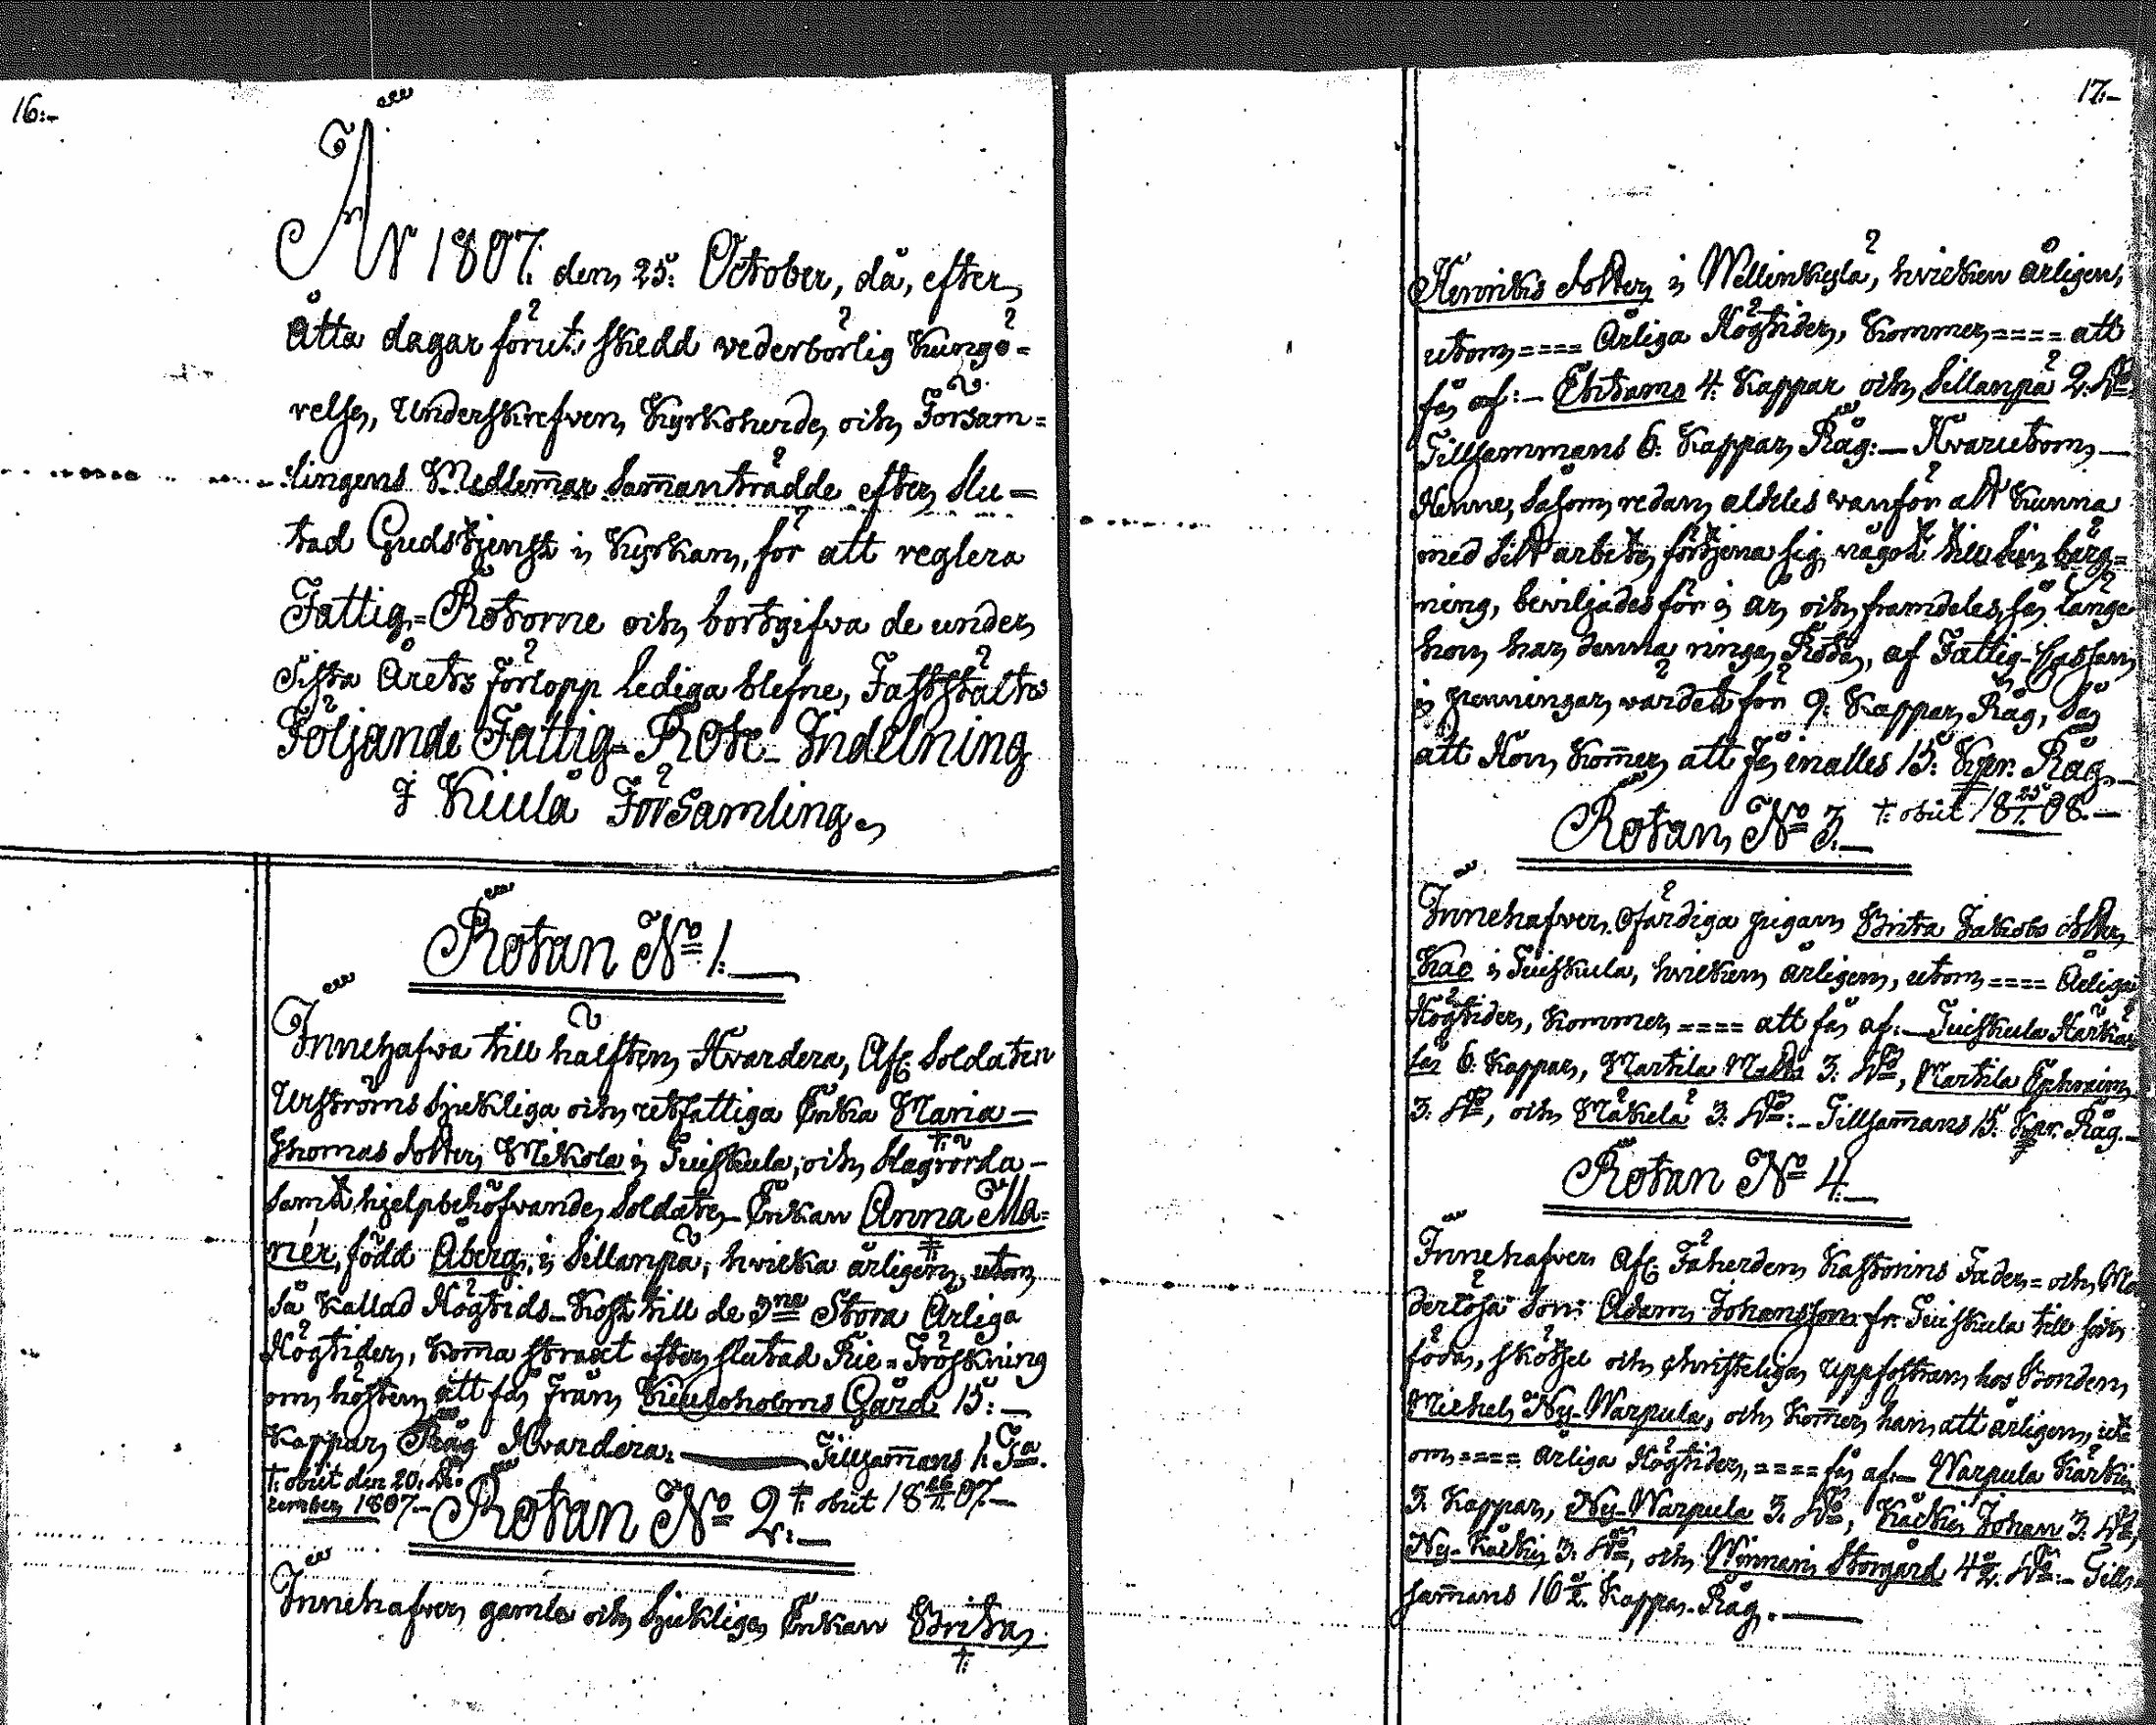 16:-
År 1807. den 25: October, då, efter
åtta dagar förut skedd vederbörlig kungö=
relse, Underskrefven Kyrkoherde och Försam=
lingens Medlem̄ar sam̄anträdde efter slu=
tad Gudstjenst i Kyrkan, för att reglera
Fattig=Rotorne och bortgifva de under
Sista Årets förlopp lediga blefne, Fastställtes
Följande Fattig=Rote-Indelning
I Kiula Församling.
Rotan No 1:
Innehafva till hälften Hvardera, Afl. Soldaten
Urströms sjukliga och utfattiga Enka Maria
Thomas dotter Mikola i Tuiskula, och slagrörda
samt hjelpbehöfvande Soldate-Enkan Anna Ma=
nér, född Åberg, i Sillanpä, hvilka årligen, utom
så kallad Högtids-Kost till de 3ne Stora Årliga
Högtider, kom̄a straxt efter slutad Rie=Tröskning
om hösten att få från Kiuloholms Gård 15:
Kappar Råg Hvardera: Tillsam̄ans 1. Ta.
†: obiit den 20. De
cember 1807.-
Rotan No 2:
†: obiit 18 07.-
Innehafver gamla och sjukliga Enkan Brita
†:
17:-
Henriks dotter i Wellinkylä, hvilken årligen,
utom ==== Årliga Högtider, kommer ==== att
få af:- Ehtams 4. Kappar och Sillanpä 2. do
Tillsammans 6: Kappar Råg:- Hvarutom
Henne, såsom redan aldeles vanför att kunna
med sitt arbete förtjena sig något till sin bärg=
ning, beviljades för i år och framdeles, så länge
hon har denna ringa Rota, af Fattig-Cassan
i penningar värdet för 9: Kappar Råg, så
att Hon kom̄er att få inalles 15: Kpr. Råg.
†: obiit 18 25/1. 08.-
Rotan No 3:
Innehafver Ofärdiga pigan Brita Jakobs dotter
Kao i Tuiskula, hvilken årligen, utom ==== Årliga
Högtider, kommer ==== att få af:- Tuiskula Härka
lä 6: Kappar, Martila Matts 3: do, Martila Ephraim
3: do, och Mäkelä 3: do:- Tillsam̄ans 15: Kpr. Råg.-
Rotan No 4.
Innehafver Afl. Fäherden Kastorins Fader= och Mo
derlösa Son: Adam Johansson fr. Tuiskula till sin
föda, skötsel och christeliga uppfostran hos Bonden
Michel Ny-Warpula, och kom̄er han att årligen, ut
om ==== årliga Högtider, ==== få af:- Warpula Kärki
3. Kappar, Ny-Warpula 3. do, Kärki Johan 3. do,
Ny-Kärki 3. do, och Winnari Storgård 4½. do:- Till
sam̄ans 16½. Kappar Råg.